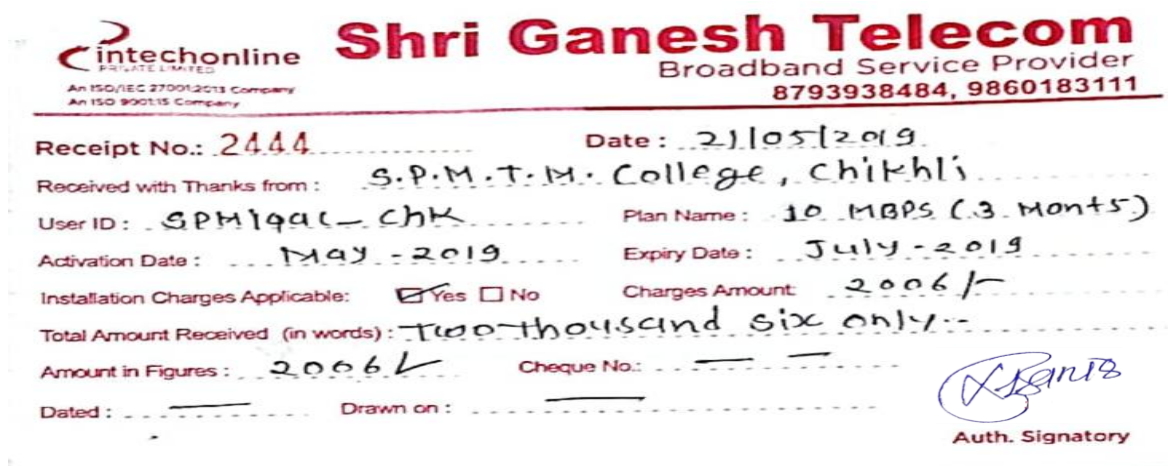 Shri Ganesh Telecom
intechonline
PRIVATE LIMITED
Broadband Service Provider
An ISO/IEC 27001:2013 Company
An ISO 9001:15 Company
8793938484, 9860183111
Receipt No.: 2444 Date : 21/05/2019
Received with Thanks from : S.P.M.T.M. College, Chikhli
User ID : SPMiqac_Chk Plan Name : 10 MBPS (3 Monts)
Activation Date : May - 2019 Expiry Date : July - 2019
Installation Charges Applicable: Yes No Charges Amount: 2006/-
Total Amount Received (in words) : Two thousand six only.-
Amount in Figures : 2006/- Cheque No.: — —
Dated : — Drawn on : —
Auth. Signatory